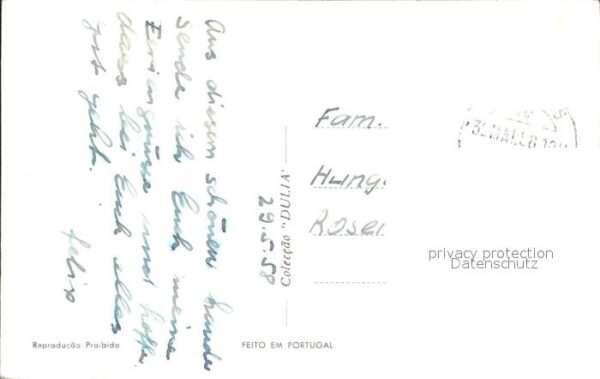 Aus diesem schönen Lande
sende ich Euch meine
Feriengrüsse und hoffe
dass bei Euch alles
gut geht.
Felix
29.5.58
Colecção "DULIA"
Fam.
Hung.
Roser
31 MAI.58
privacy protection
Datenschutz
Reprodução Proibida
FEITO EM PORTUGAL